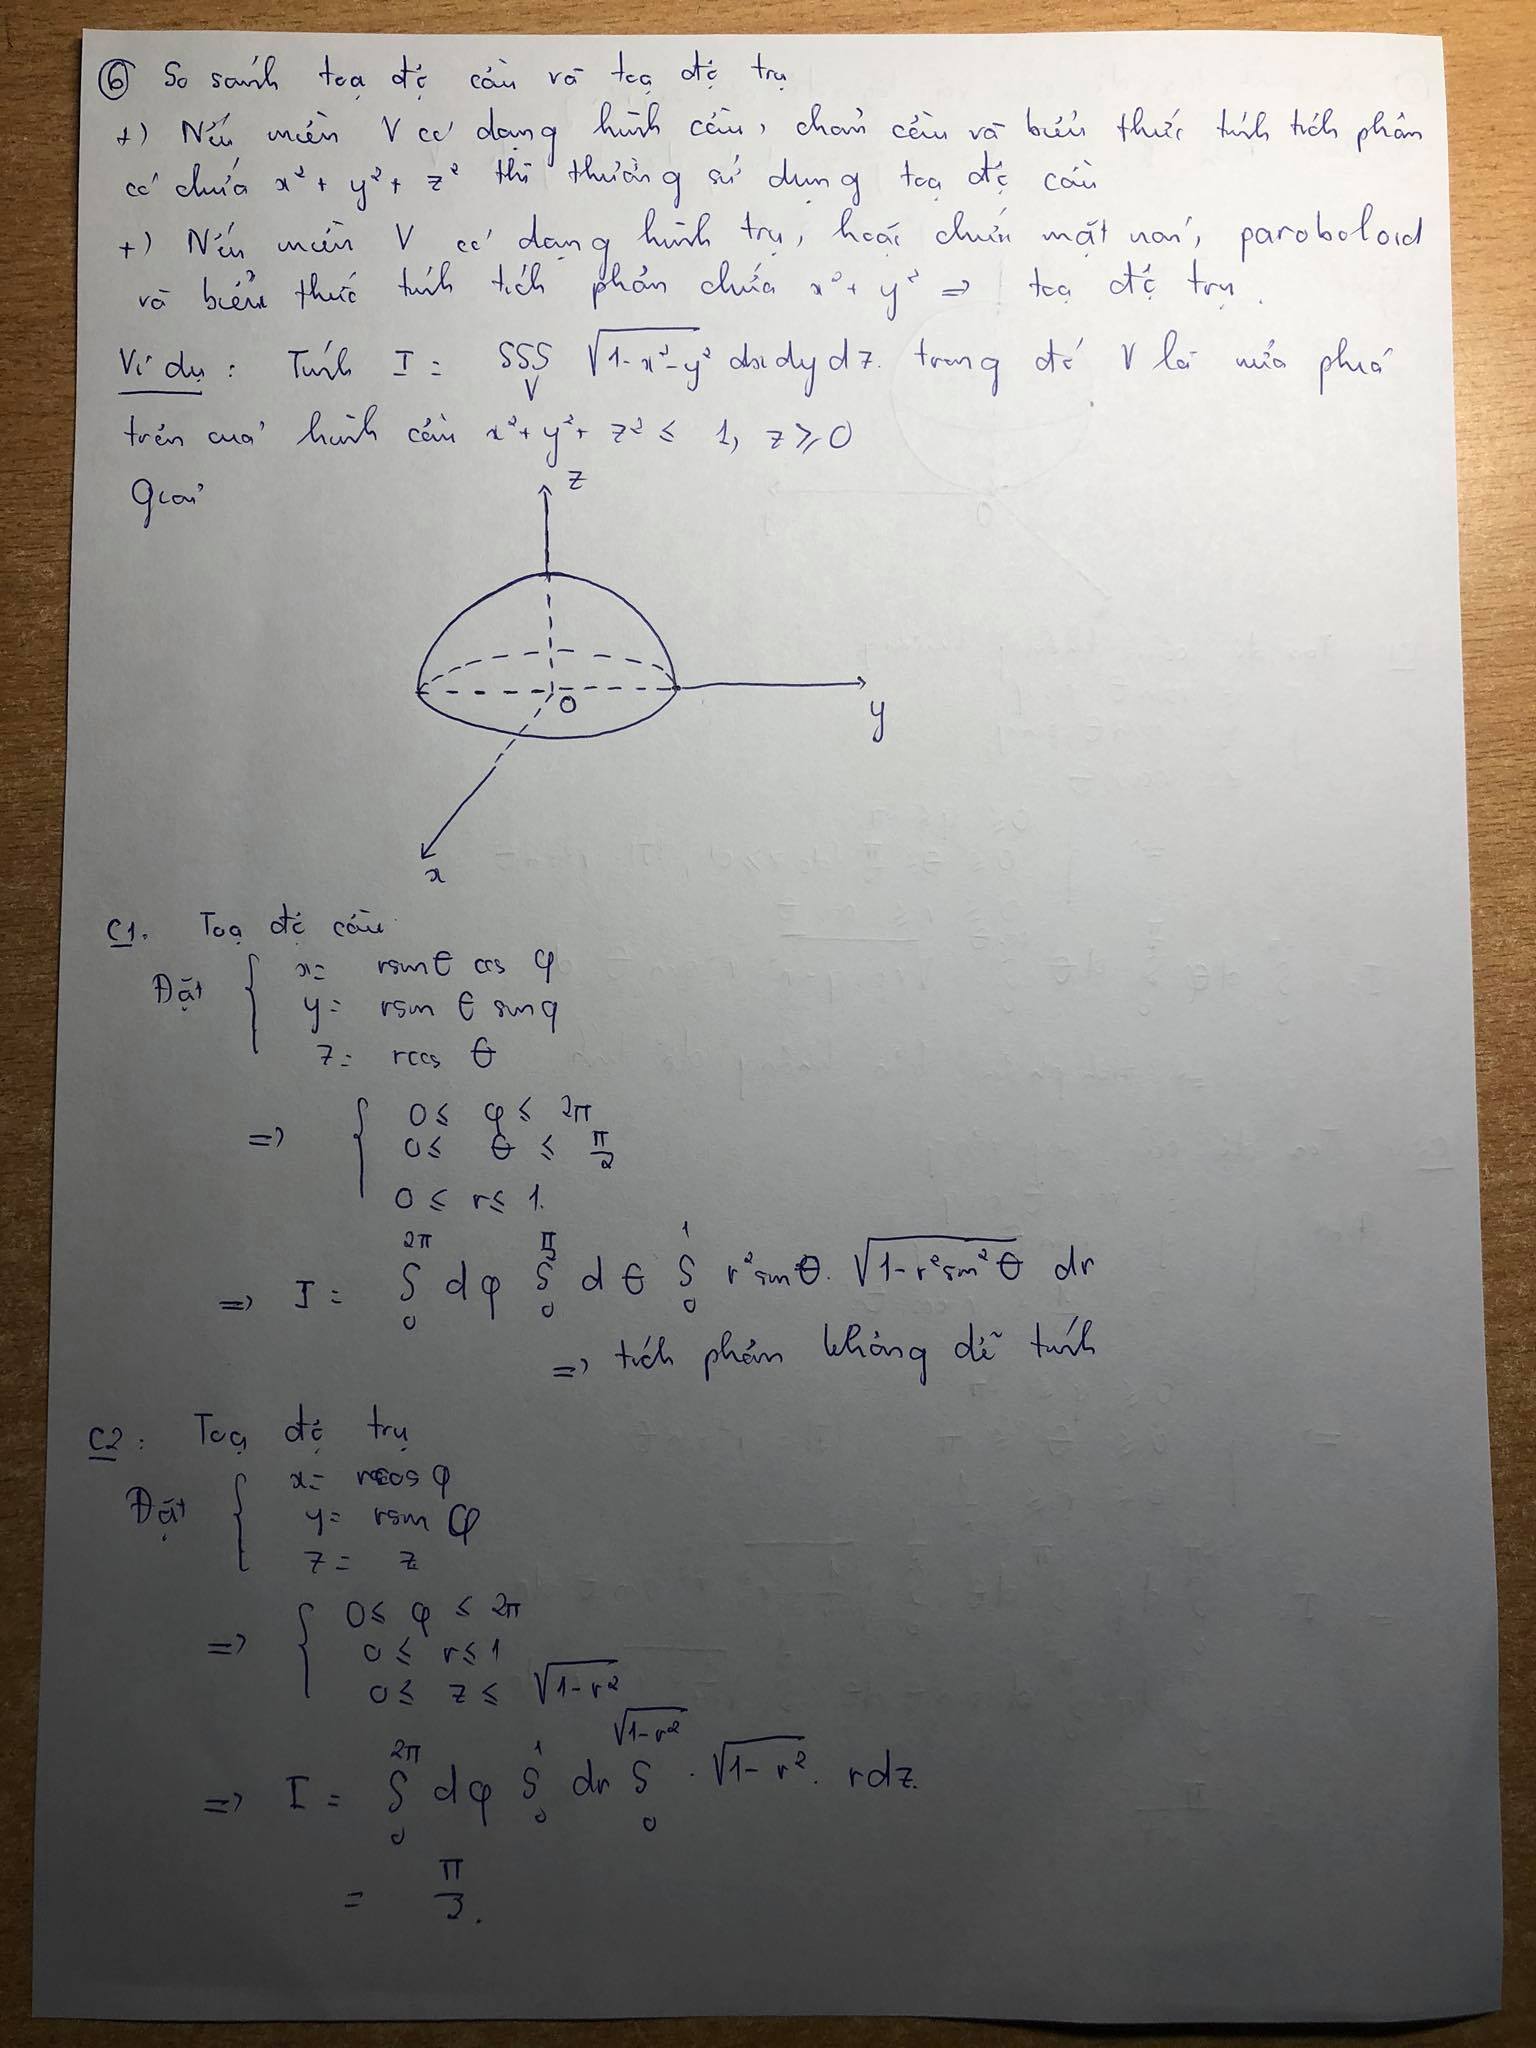 ⑥ So sánh toạ độ cầu và toạ độ trụ
+) Nếu miền V có dạng hình cầu, chỏm cầu và biểu thức tính tích phân
có chứa x² + y² + z² thì thường sử dụng toạ độ cầu
+) Nếu miền V có dạng hình trụ, hoặc chứa mặt nón, paraboloid
và biểu thức tính tích phân chứa x² + y² => toạ độ trụ.
Ví dụ: Tính I = ∭_V √(1-x²-y²) dxdydz. trong đó V là nửa phía
trên của hình cầu x² + y² + z² ≤ 1, z ≥ 0
Giải
z
O
y
x
C1. Toạ độ cầu
Đặt { x = rsinθ cos φ
y = rsin θ sinφ
z = rcos θ
=> { 0 ≤ φ ≤ 2π
0 ≤ θ ≤ π/2
0 ≤ r ≤ 1.
=> I = ∫₀^{2π} dφ ∫₀^{π/2} dθ ∫₀^1 r²sinθ. √(1-r²sin²θ) dr
=> tích phân không dễ tính
C2: Toạ độ trụ
Đặt { x = rcosφ
y = rsin φ
z = z
=> { 0 ≤ φ ≤ 2π
0 ≤ r ≤ 1
0 ≤ z ≤ √(1-r²)
=> I = ∫₀^{2π} dφ ∫₀^1 dr ∫₀^{√(1-r²)} . √(1-r²). rdz.
= π/3.